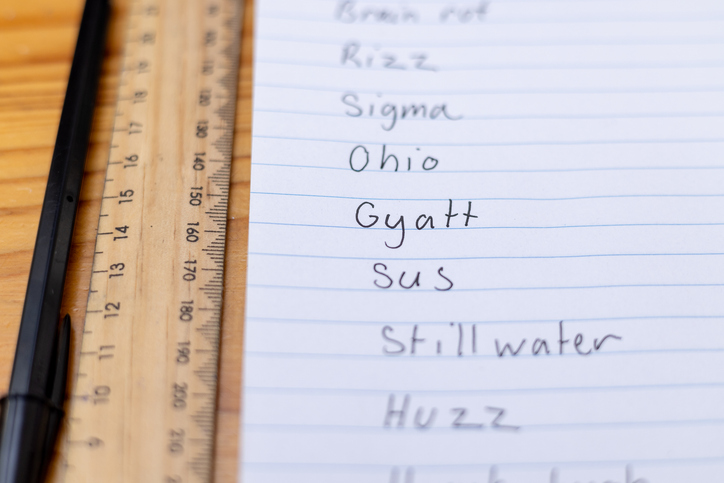 Brain rot
Rizz
Sigma
Ohio
Gyatt
Sus
Still water
Huzz
18
17
16
15
14
13
12
11
10
9
120
130
140
150
160
170
180
190
200
210